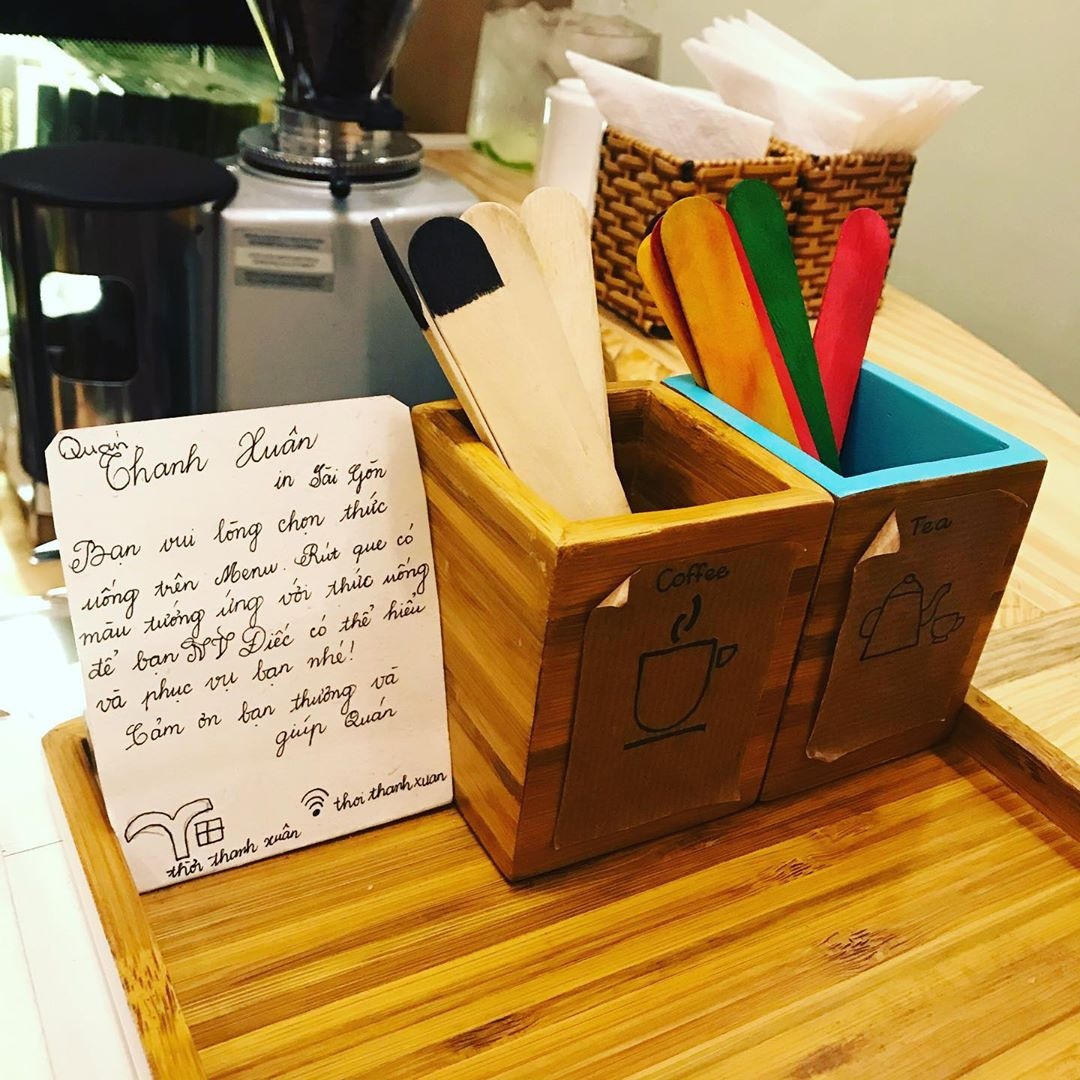 Quán Thanh Xuân
in Sài Gòn
Bạn vui lòng chọn thức
uống trên Menu. Rút que có
màu tương ứng với thức uống
để bạn NV Điếc có thể hiểu
và phục vụ bạn nhé!
Cảm ơn bạn thương và
giúp Quán
thoi thanh xuan
thời thanh xuân
Coffee
Tea